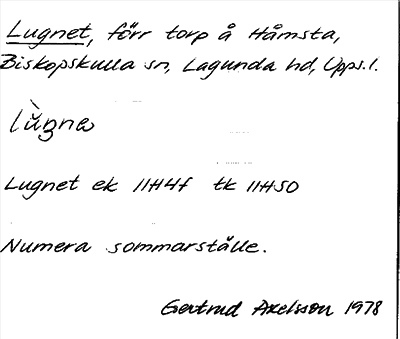 Lugnet, förr torp å Håmsta,
Biskopskulla sn, Lagunda hd, Upps. l.
lùgnə
Lugnet ek 11H4f tk 11H50
Numera sommarställe.
Gertrud Axelsson 1978